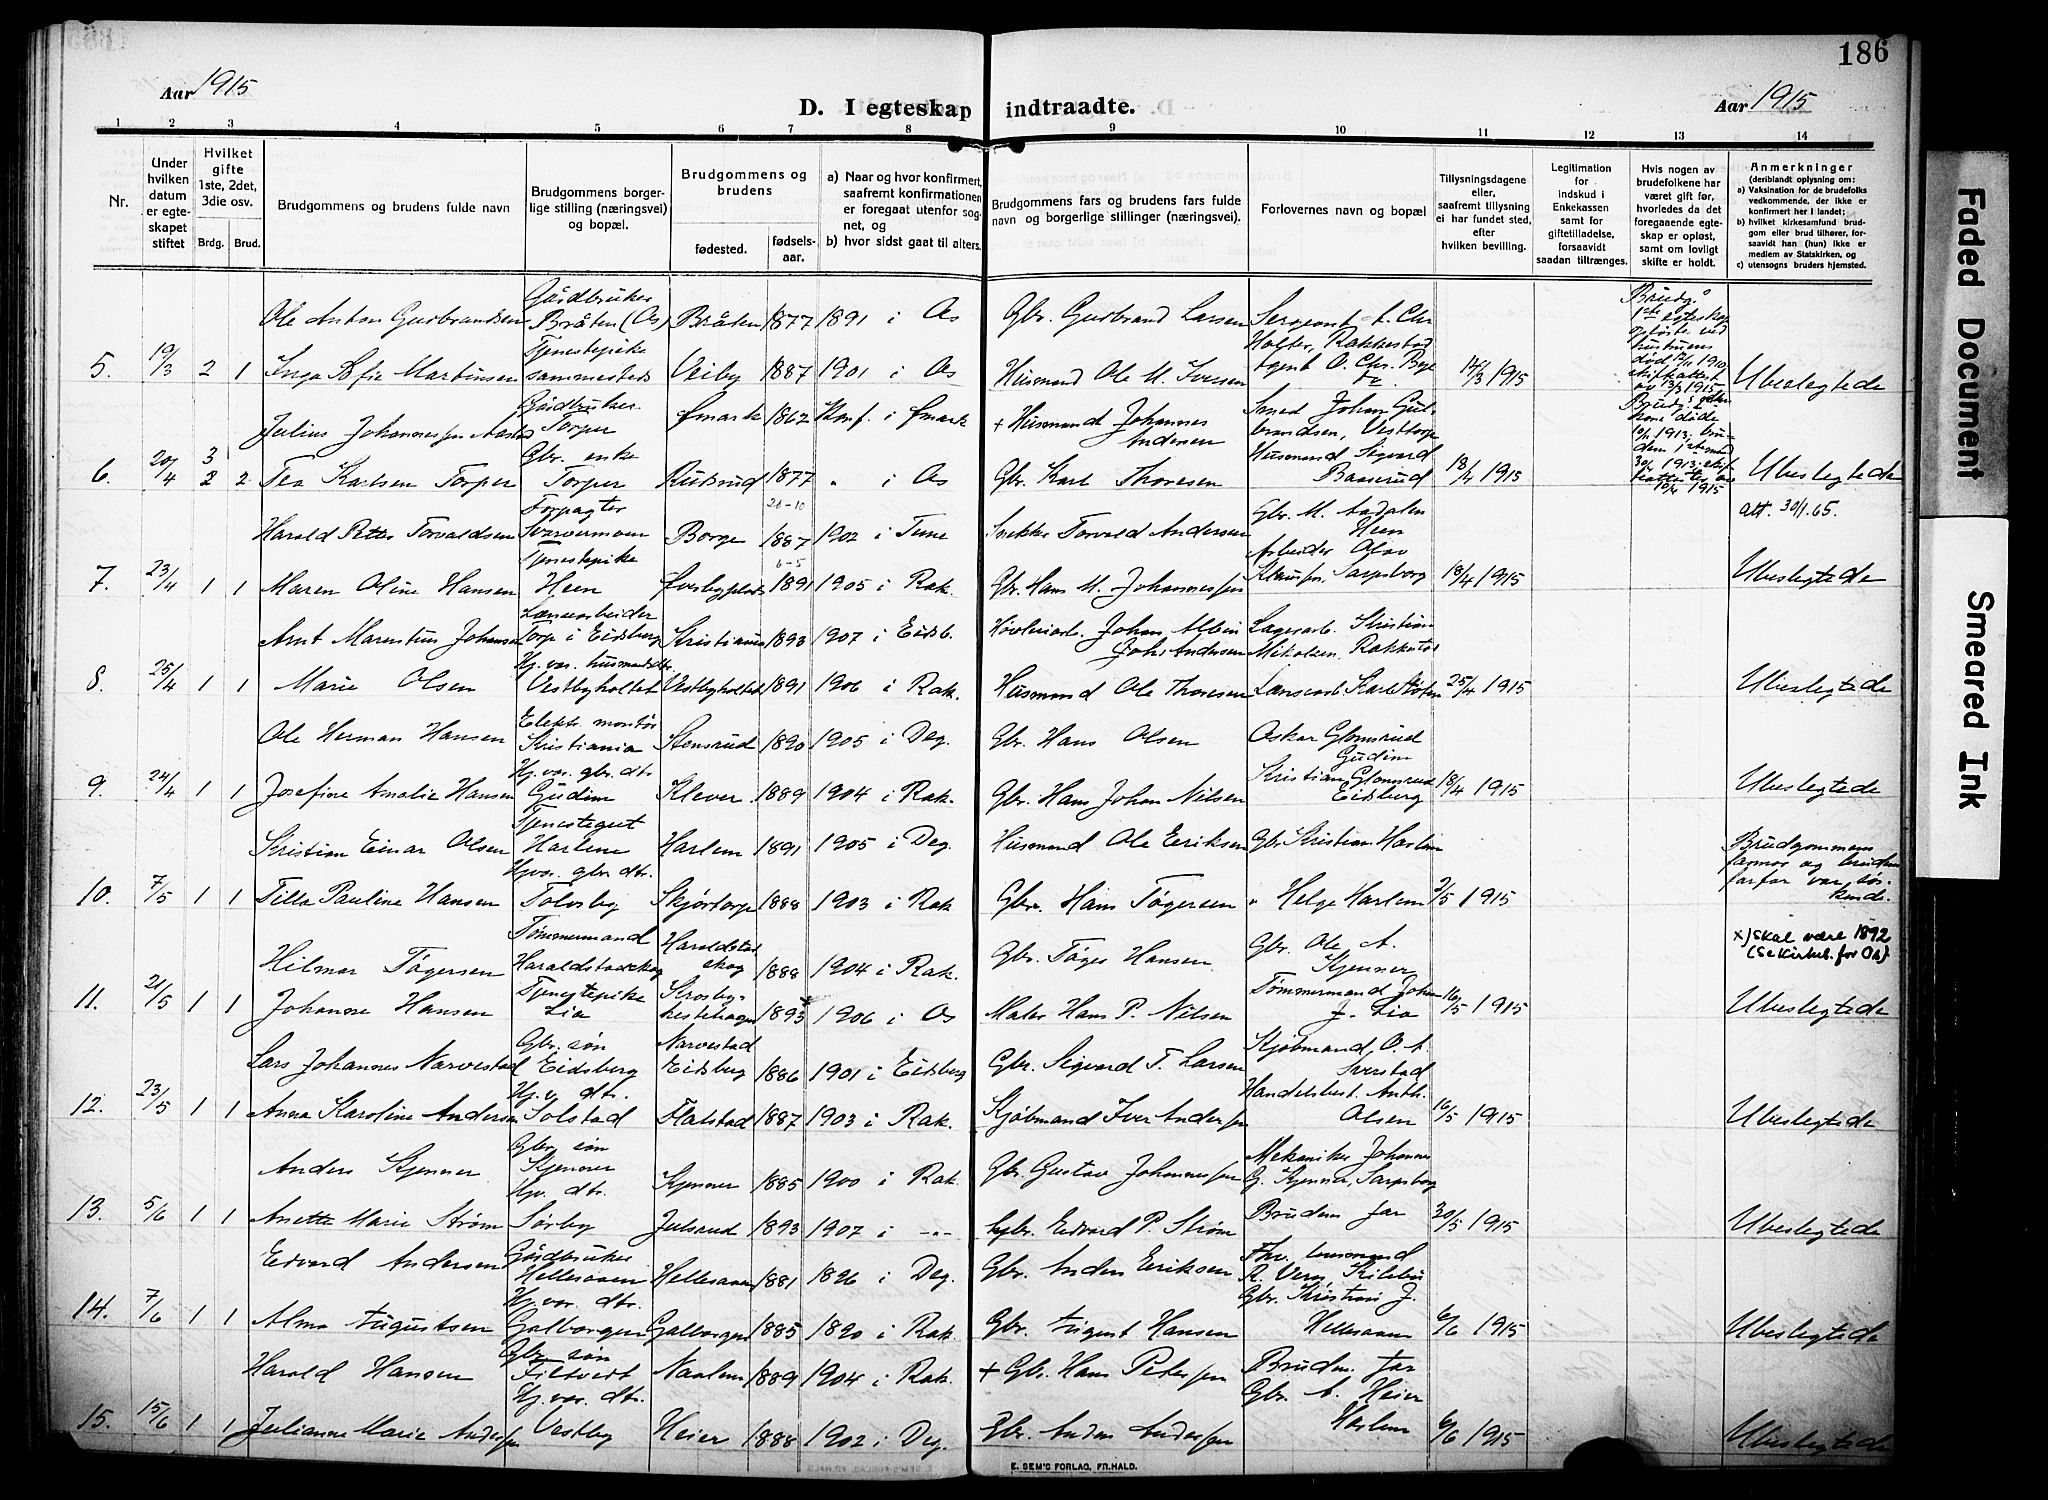 186
Aar 1915
D. I egteskap indtraadte.
Aar 1915
1 2 3 4 5 6 7 8 9 10 11 12 13 14
Nr.
Under hvilken datum er egteskapet stiftet
Hvilket gifte 1ste, 2det, 3die osv.
Brdg. Brud.
Brudgommens og brudens fulde navn
Brudgommens borgerlige stilling (næringsvei) og bopæl.
Brudgommens og brudens
fødested. fødselsaar.
a) Naar og hvor konfirmert, saafremt konfirmationen er foregaat utenfor sognet, og
b) hvor sidst gaat til alters.
Brudgommens fars og brudens fars fulde navn og borgerlige stillinger (næringsvei).
Forlovernes navn og bopæl
Tillysningsdagene eller, saafremt tillysning ei har fundet sted, efter hvilken bevilling.
Legitimation for indskud i Enkekassen samt for giftetilladelse, forsaavidt saadan tiltrænges.
Hvis nogen av brudefolkene har været gift før, hvorledes da det foregaaende egteskap er opløst, samt om lovligt skifte er holdt.
Anmerkninger
(deriblandt oplysning om:
a) Vaksination for de brudefolks vedkommende, der ikke er konfirmert her i landet;
b) hvilket kirkesamfund brudgom eller brud tilhører, forsaavidt han (hun) ikke er medlem av Statskirken, og
c) utensogns bruders hjemsted.
Ole Anton Gudbrandsen Gårdbruker Bråten (Os) Bråten 1877 1891 i Os Gbr. Gudbrand Larsen Sergeant A. Chr Holter, Rakkestad
5. 19/3 2 1 Inga Sofie Martinsen Tjenestepike sammesteds Veiby 1887 1901 i Os Husmand Ole M. Iversen Agent O. Chr. 14/3 1915 Brudg. 1ste egteskap opløstes ved hustruens død 12/11 1910 skifteattest av 13/3 1915 Ubeslegtede
Julius Johannessen Gårdbruker Torper Ømark 1862 Konf. i Ømark + Husmand Johannes Andersen Smed Johan Gulbrandsen, Vesttorp
6. 20/4 3 2 2 Tea Karlsen Torper Gbr. enke Torper Rudsrud 1877 " i Os Gbr. Karl Thoresen Husmand Sigvard Baaserud 18/4 1915 Ubeslegtede
Harald Petter Torvaldsen Forpagter 26-10 Borge 1887 1902 i Tune Snekker Torvald Andersen Gbr. M. Aadalen Heen att. 30/1.65.
7. 23/4 1 1 Maren Oline Hansen Tjenestepike Heen 6-5 1891 1905 i Rak. Gbr. Hans M. Johannessen Arbeider Olav Sarpsborg 18/4 1915 Ubeslegtede
Arnt Marentius Johansen Torp i Eidsberg Kristiania 1893 1907 i Eidsb. Johan Albin Andersen Lagerarb. Kristian Mikalsen, Rakkestad
8. 25/4 1 1 Marie Olsen Hj. vær. husmandsdtr. Vestbyholtet Vestbyholtet 1891 1906 i Rak. Husmand Ole Thoresen 25/4 1915 Ubeslegtede
Ole Herman Hansen Elektr. montør Kristiania Stensrud 1890 1905 i Deg. Gbr. Hans Olsen Oskar Glomsrud Gudim
9. 24/4 1 1 Josefine Amalie Hansen Hj. vær. gbr. dtr. Gudim Klever 1889 1904 i Rak. Gbr. Hans Johan Nilsen Kristian Glomsrud Eidsberg 18/4 1915 Ubeslegtede
Kristian Einar Olsen Tjenestegut Harlem Harlem 1891 1905 i Deg. Husmand Ole Eriksen Gbr. Kristian Harlem
10. 7/5 1 1 Tilla Pauline Hansen Hj. vær. gbr. dtr. Tolvsby Skjørtorp 1888 1903 i Rak. Gbr. Hans Tøgersen " Helge Harlem 2/5 1915 Brudgommens farmor og brudens farfar var søskende.
Hilmar Tøgersen Tømmermand Haraldstadskog Haraldstadskog 1888 1904 i Rak. Gbr. Tøger Hansen Gbr. Ole A. Kjenner x) Skal være 1892 (Se kirkeb. for Os)
11. 21/5 1 1 Johanne Hansen Tjenestepike Lia Krosbyhestehagen 1893 x 1906 i Os Maler Hans P. Nilsen Tømmermand Johan J. Lia 16/5 1915 Ubeslegtede
Lars Johannes Narvestad Gbr. søn Eidsberg Narvestad Eidsberg 1886 1901 i Eidsberg Gbr. Sigvard T. Larsen Kjøbmand O. A. Sverstad
12. 23/5 1 1 Anna Karoline Andersen Hj. v. dtr. Solstad Flatstad 1887 1903 i Rak. Kjøbmand Iver Andersen Handelsbest. Anth. Olsen 16/5 1915 Ubeslegtede
Anders Kjenner Gbr. søn Kjenner Kjenner 1885 1900 i Rak. Gbr. Gustav Johannessen Mekaniker Johannes G. Kjenner, Sarpsborg
13. 5/6 1 1 Anette Marie Strøm Hjv. dtr. Sørby Julsrud 1893 1907 i -"- Gbr. Edvard P. Strøm Brudens far 30/5 1915 Ubeslegtede
Edvard Andersen Gårdbruker Hellesaaen Hellesaaen 1881 1896 i Deg. Gbr. Anders Eriksen
14. 7/6 1 1 Alma Augustsen Hj. vær. dtr. Galborgen Galborgen 1885 1890 i Rak. Gbr. August Hansen Gbr. Kristian J. Hellesaaen 6/6 1915 Ubeslegtede
Harald Hansen Gbr. søn Fiktvedt Naalem 1889 1904 i Rak. + Gbr. Hans Petersen Brudens far
15. 15/6 1 1 Julianne Marie Andersen Hj. vær. dtr. Vestby Heier 1888 1902 i Deg. Gbr. Anders Andersen Gbr. A. Heier Harlem 6/6 1915 Ubeslegtede
E. SEM'S FORLAG, FR.HALD.
Faded Document
Smeared Ink